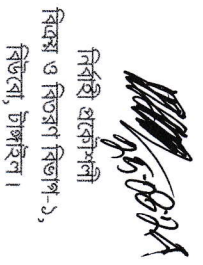 নির্বাহী প্রকৌশলী
বিক্রয় ও বিতরণ বিভাগ-১,
বিউবো, টাঙ্গাইল।